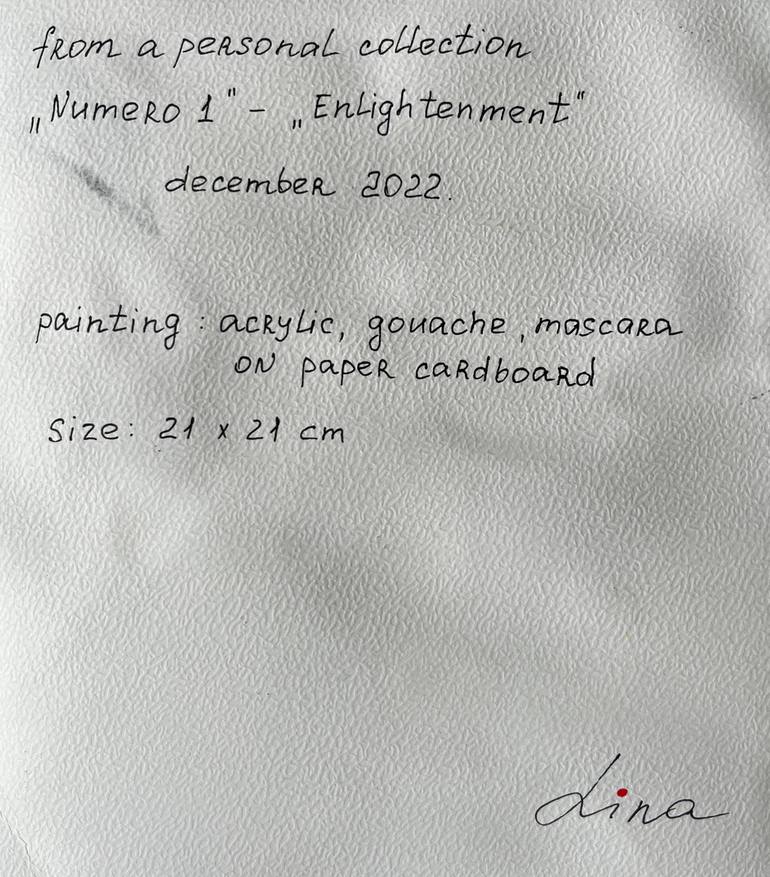 from a personal collection
„Numero 1" - „Enlightenment"
december 2022.
painting : acrylic, gouache, mascara
on paper cardboard
size: 21 x 21 cm
Lina